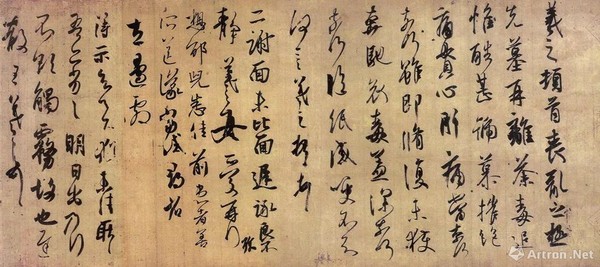 羲之頓首喪亂之極
先墓再離荼毒追
惟酷甚號慕摧絶
痛貫心肝痛當奈何
奈何雖即脩復未獲
奔馳哀毒益深奈何
奈何臨紙感哽不知
何言羲之頓首頓首
二謝面未比面遲詠良不
靜羲之女愛再拜
想邵兒悉佳前患者善
所送議當試尋省
左邊劇
得示知足下猶未佳耿耿
吾亦劣劣明日出乃行
不欲觸霧故也遲
散王羲之頓首
Artron.Net